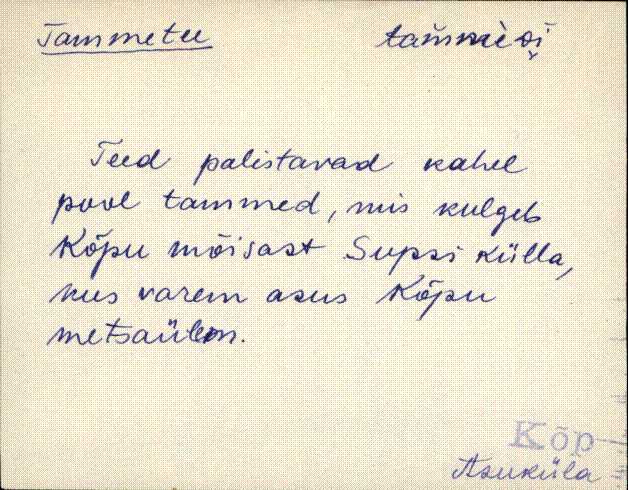 Tammetee
Teed palistavad kahel
pool tammed, mis kulgeb
Kõpu mõisast Supsi külla,
kus varem asus Kõpu
metsaülem.
Kõp
Asuküla